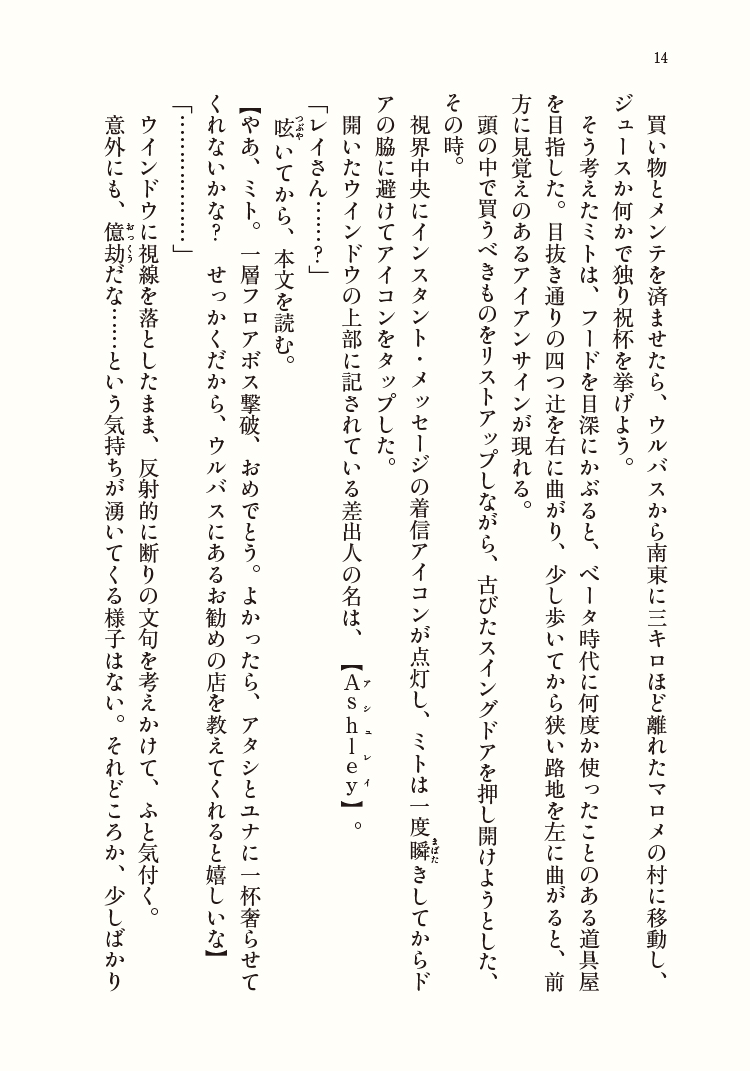 14
買い物とメンテを済ませたら、ウルバスから南東に三キロほど離れたマロメの村に移動し、
ジュースか何かで独り祝杯を挙げよう。
そう考えたミトは、フードを目深にかぶると、ベータ時代に何度か使ったことのある道具屋
を目指した。目抜き通りの四つ辻を右に曲がり、少し歩いてから狭い路地を左に曲がると、前
方に見覚えのあるアイアンサインが現れる。
頭の中で買うべきものをリストアップしながら、古びたスイングドアを押し開けようとした、
その時。
視界中央にインスタント・メッセージの着信アイコンが点灯し、ミトは一度瞬まばたきしてからド
アの脇に避けてアイコンをタップした。
開いたウインドウの上部に記されている差出人の名は、【Ashleyアシュレイ】。
「レイさん……？」
呟つぶやいてから、本文を読む。
【やあ、ミト。一層フロアボス撃破、おめでとう。よかったら、アタシとユナに一杯奢らせて
くれないかな？　せっかくだから、ウルバスにあるお勧めの店を教えてくれると嬉しいな】
「………………」
ウインドウに視線を落としたまま、反射的に断りの文句を考えかけて、ふと気付く。
意外にも、億劫おっくうだな……という気持ちが湧いてくる様子はない。それどころか、少しばかり